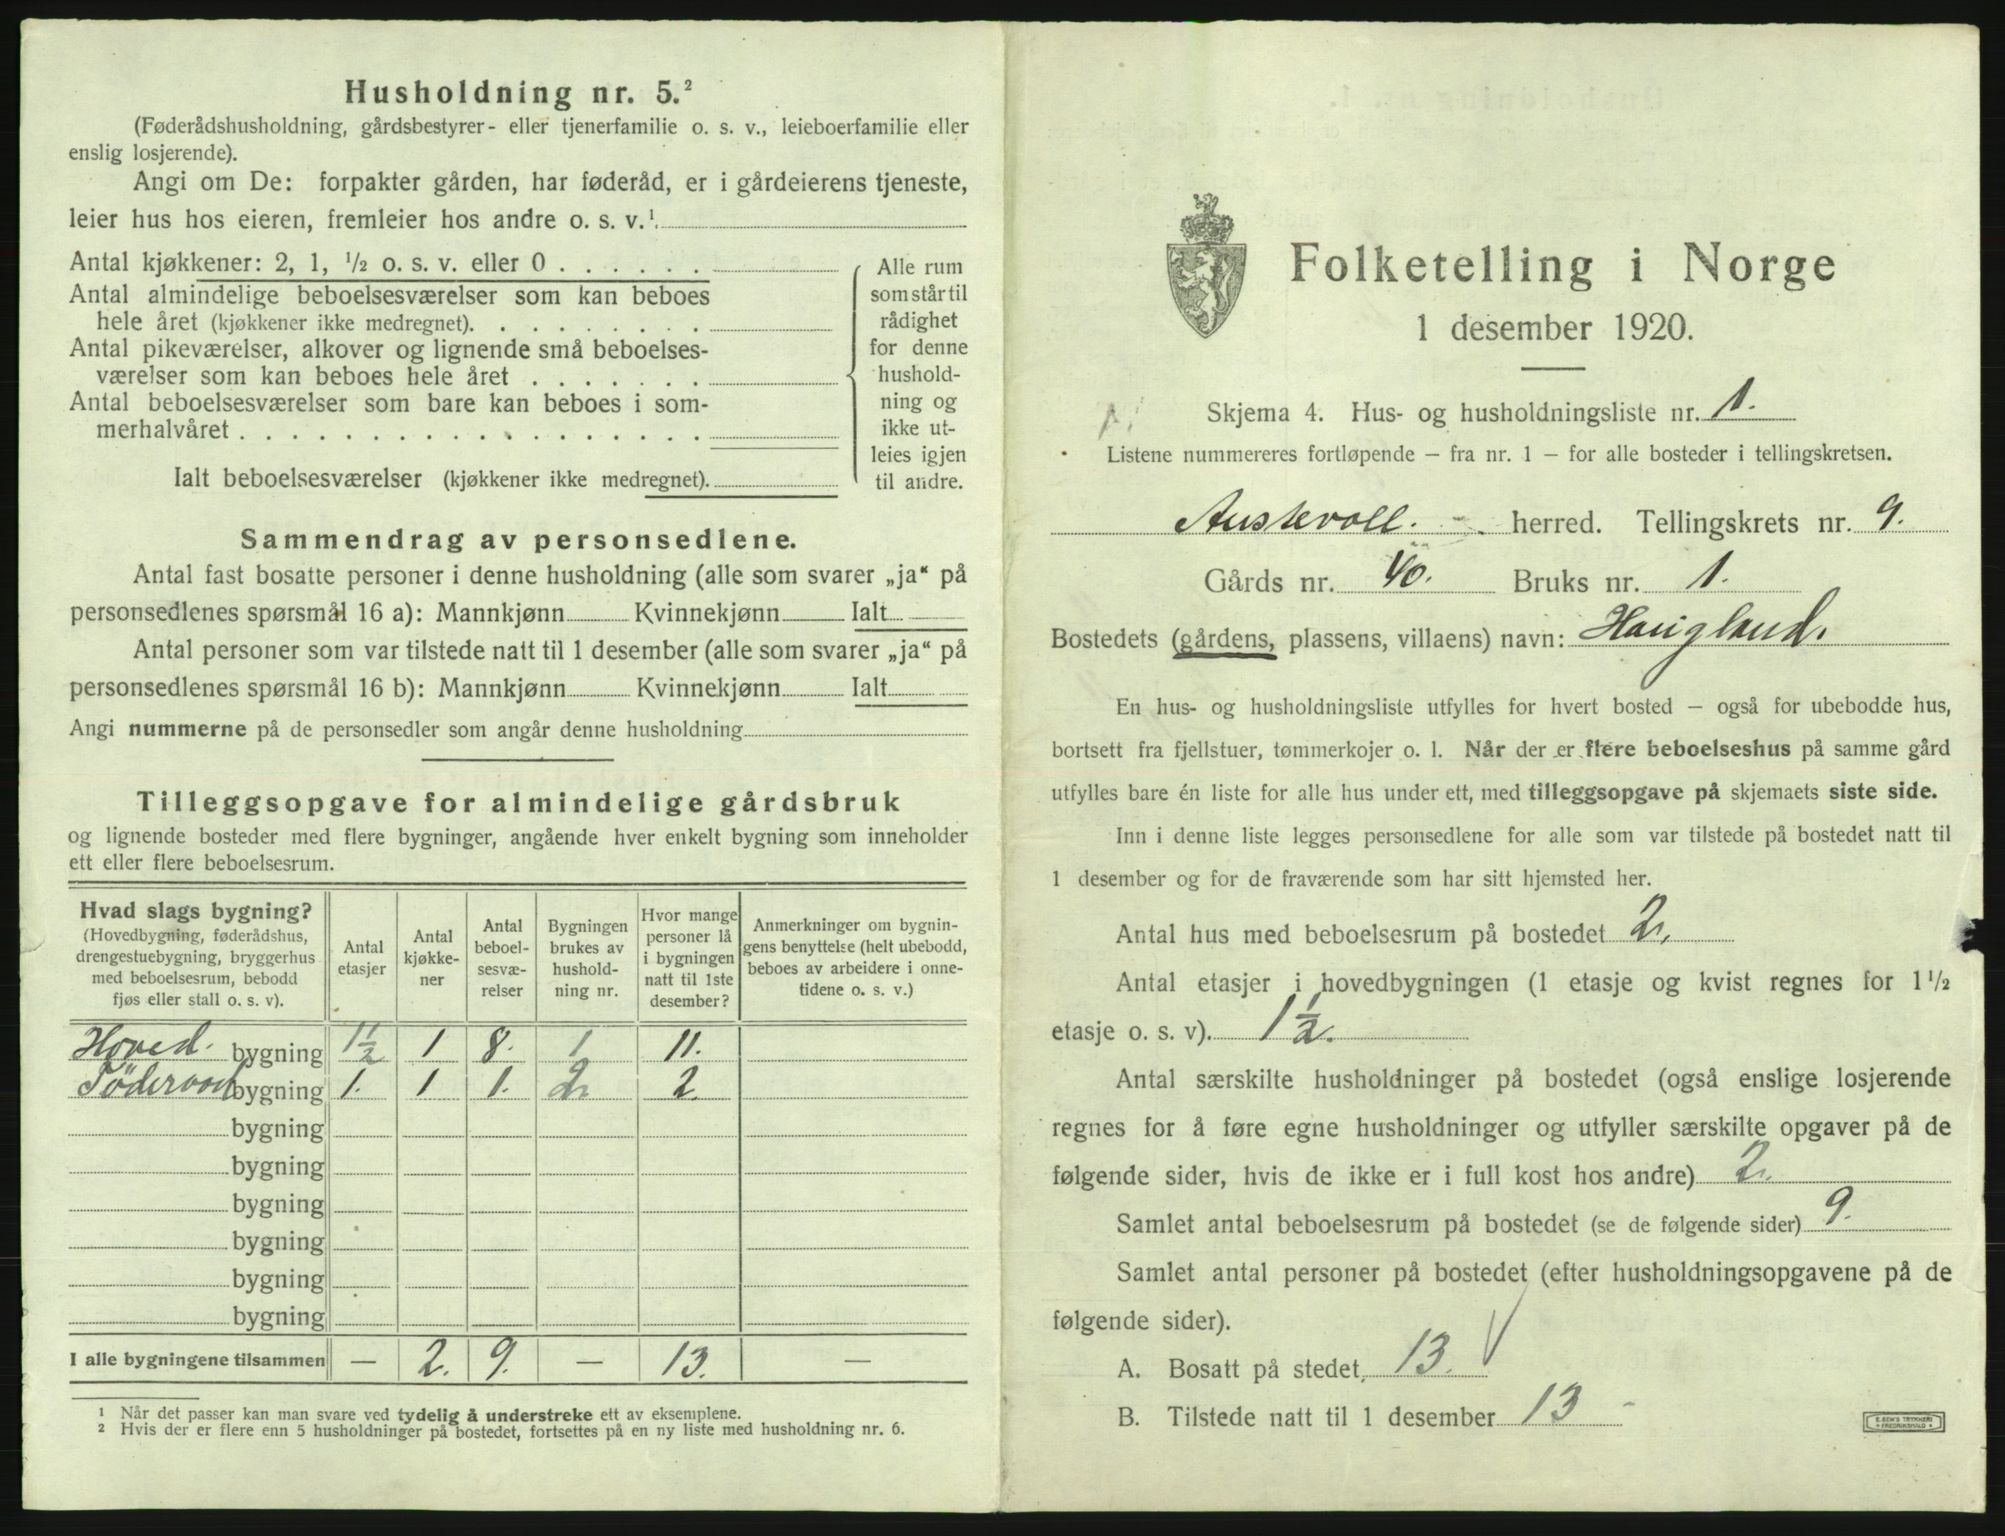 Husholdning nr. 5.²
(Føderådshusholdning, gårdsbestyrer- eller tjenerfamilie o. s. v., leieboerfamilie eller
enslig losjerende).
Angi om De: forpakter gården, har føderåd, er i gårdeierens tjeneste,
leier hus hos eieren, fremleier hos andre o. s. v.¹.
Antal kjøkkener: 2, 1, ½ o. s. v. eller 0 . . . . . .
Antal almindelige beboelsesværelser som kan beboes
hele året (kjøkkener ikke medregnet). . . . . . . . .
Antal pikeværelser, alkover og lignende små beboelses-
værelser som kan beboes hele året . . . . . . .
Antal beboelsesværelser som bare kan beboes i som-
merhalvåret . . . . . . . . . . . . . . . . . .
Ialt beboelsesværelser (kjøkkener ikke medregnet).
Alle rum
som står til
rådighet
for denne
hushold-
ning og
ikke ut-
leies igjen
til andre.
Sammendrag av personsedlene.
Antal fast bosatte personer i denne husholdning (alle som svarer „ja“ på
personsedlenes spørsmål 16 a): Mannkjønn Kvinnekjønn Ialt
Antal personer som var tilstede natt til 1 desember (alle som svarer „ja“ på
personsedlenes spørsmål 16 b): Mannkjønn Kvinnekjønn Ialt
Angi nummerne på de personsedler som angår denne husholdning
Tilleggsopgave for almindelige gårdsbruk
og lignende bosteder med flere bygninger, angående hver enkelt bygning som inneholder
ett eller flere beboelsesrum.
Hvad slags bygning?
(Hovedbygning, føderådshus,
drengestuebygning, bryggerhus
med beboelsesrum, bebodd
fjøs eller stall o. s. v).
Antal
etasjer
Antal
kjøkke-
ner
Antal
beboel-
sesvæ-
relser
Bygningen
brukes av
hushold-
ning nr.
Hvor mange
personer lå
i bygningen
natt til 1ste
desember?
Anmerkninger om bygnin-
gens benyttelse (helt ubebodd,
beboes av arbeidere i onne-
tidene o. s. v.)
Hoved. bygning 1½ 1 8. 1 11.
Föderaad bygning 1. 1 1. 2. 2.
bygning
bygning
bygning
bygning
bygning
bygning
I alle bygningene tilsammen — 2. 9. — 13. —
¹ Når det passer kan man svare ved tydelig å understreke ett av eksemplene.
² Hvis der er flere enn 5 husholdninger på bostedet, fortsettes på en ny liste med husholdning nr. 6.
Folketelling i Norge
1 desember 1920.
Skjema 4. Hus- og husholdningsliste nr. 1.
Listene nummereres fortløpende – fra nr. 1 – for alle bosteder i tellingskretsen.
Austevoll. herred. Tellingskrets nr. 9.
Gårds nr. 40. Bruks nr. 1.
Bostedets (gårdens, plassens, villaens) navn: Haugland.
En hus- og husholdningsliste utfylles for hvert bosted – også for ubebodde hus,
bortsett fra fjellstuer, tømmerkojer o. l. Når der er flere beboelseshus på samme gård
utfylles bare én liste for alle hus under ett, med tilleggsopgave på skjemaets siste side.
Inn i denne liste legges personsedlene for alle som var tilstede på bostedet natt til
1 desember og for de fraværende som har sitt hjemsted her.
Antal hus med beboelsesrum på bostedet 2.
Antal etasjer i hovedbygningen (1 etasje og kvist regnes for 1½
etasje o. s. v). 1½.
Antal særskilte husholdninger på bostedet (også enslige losjerende
regnes for å føre egne husholdninger og utfyller særskilte opgaver på de
følgende sider, hvis de ikke er i full kost hos andre) 2.
Samlet antal beboelsesrum på bostedet (se de følgende sider) 9.
Samlet antal personer på bostedet (efter husholdningsopgavene på de
følgende sider).
A. Bosatt på stedet 13.
B. Tilstede natt til 1 desember 13
E. SEM'S TRYKKERI
FREDRIKSHALD